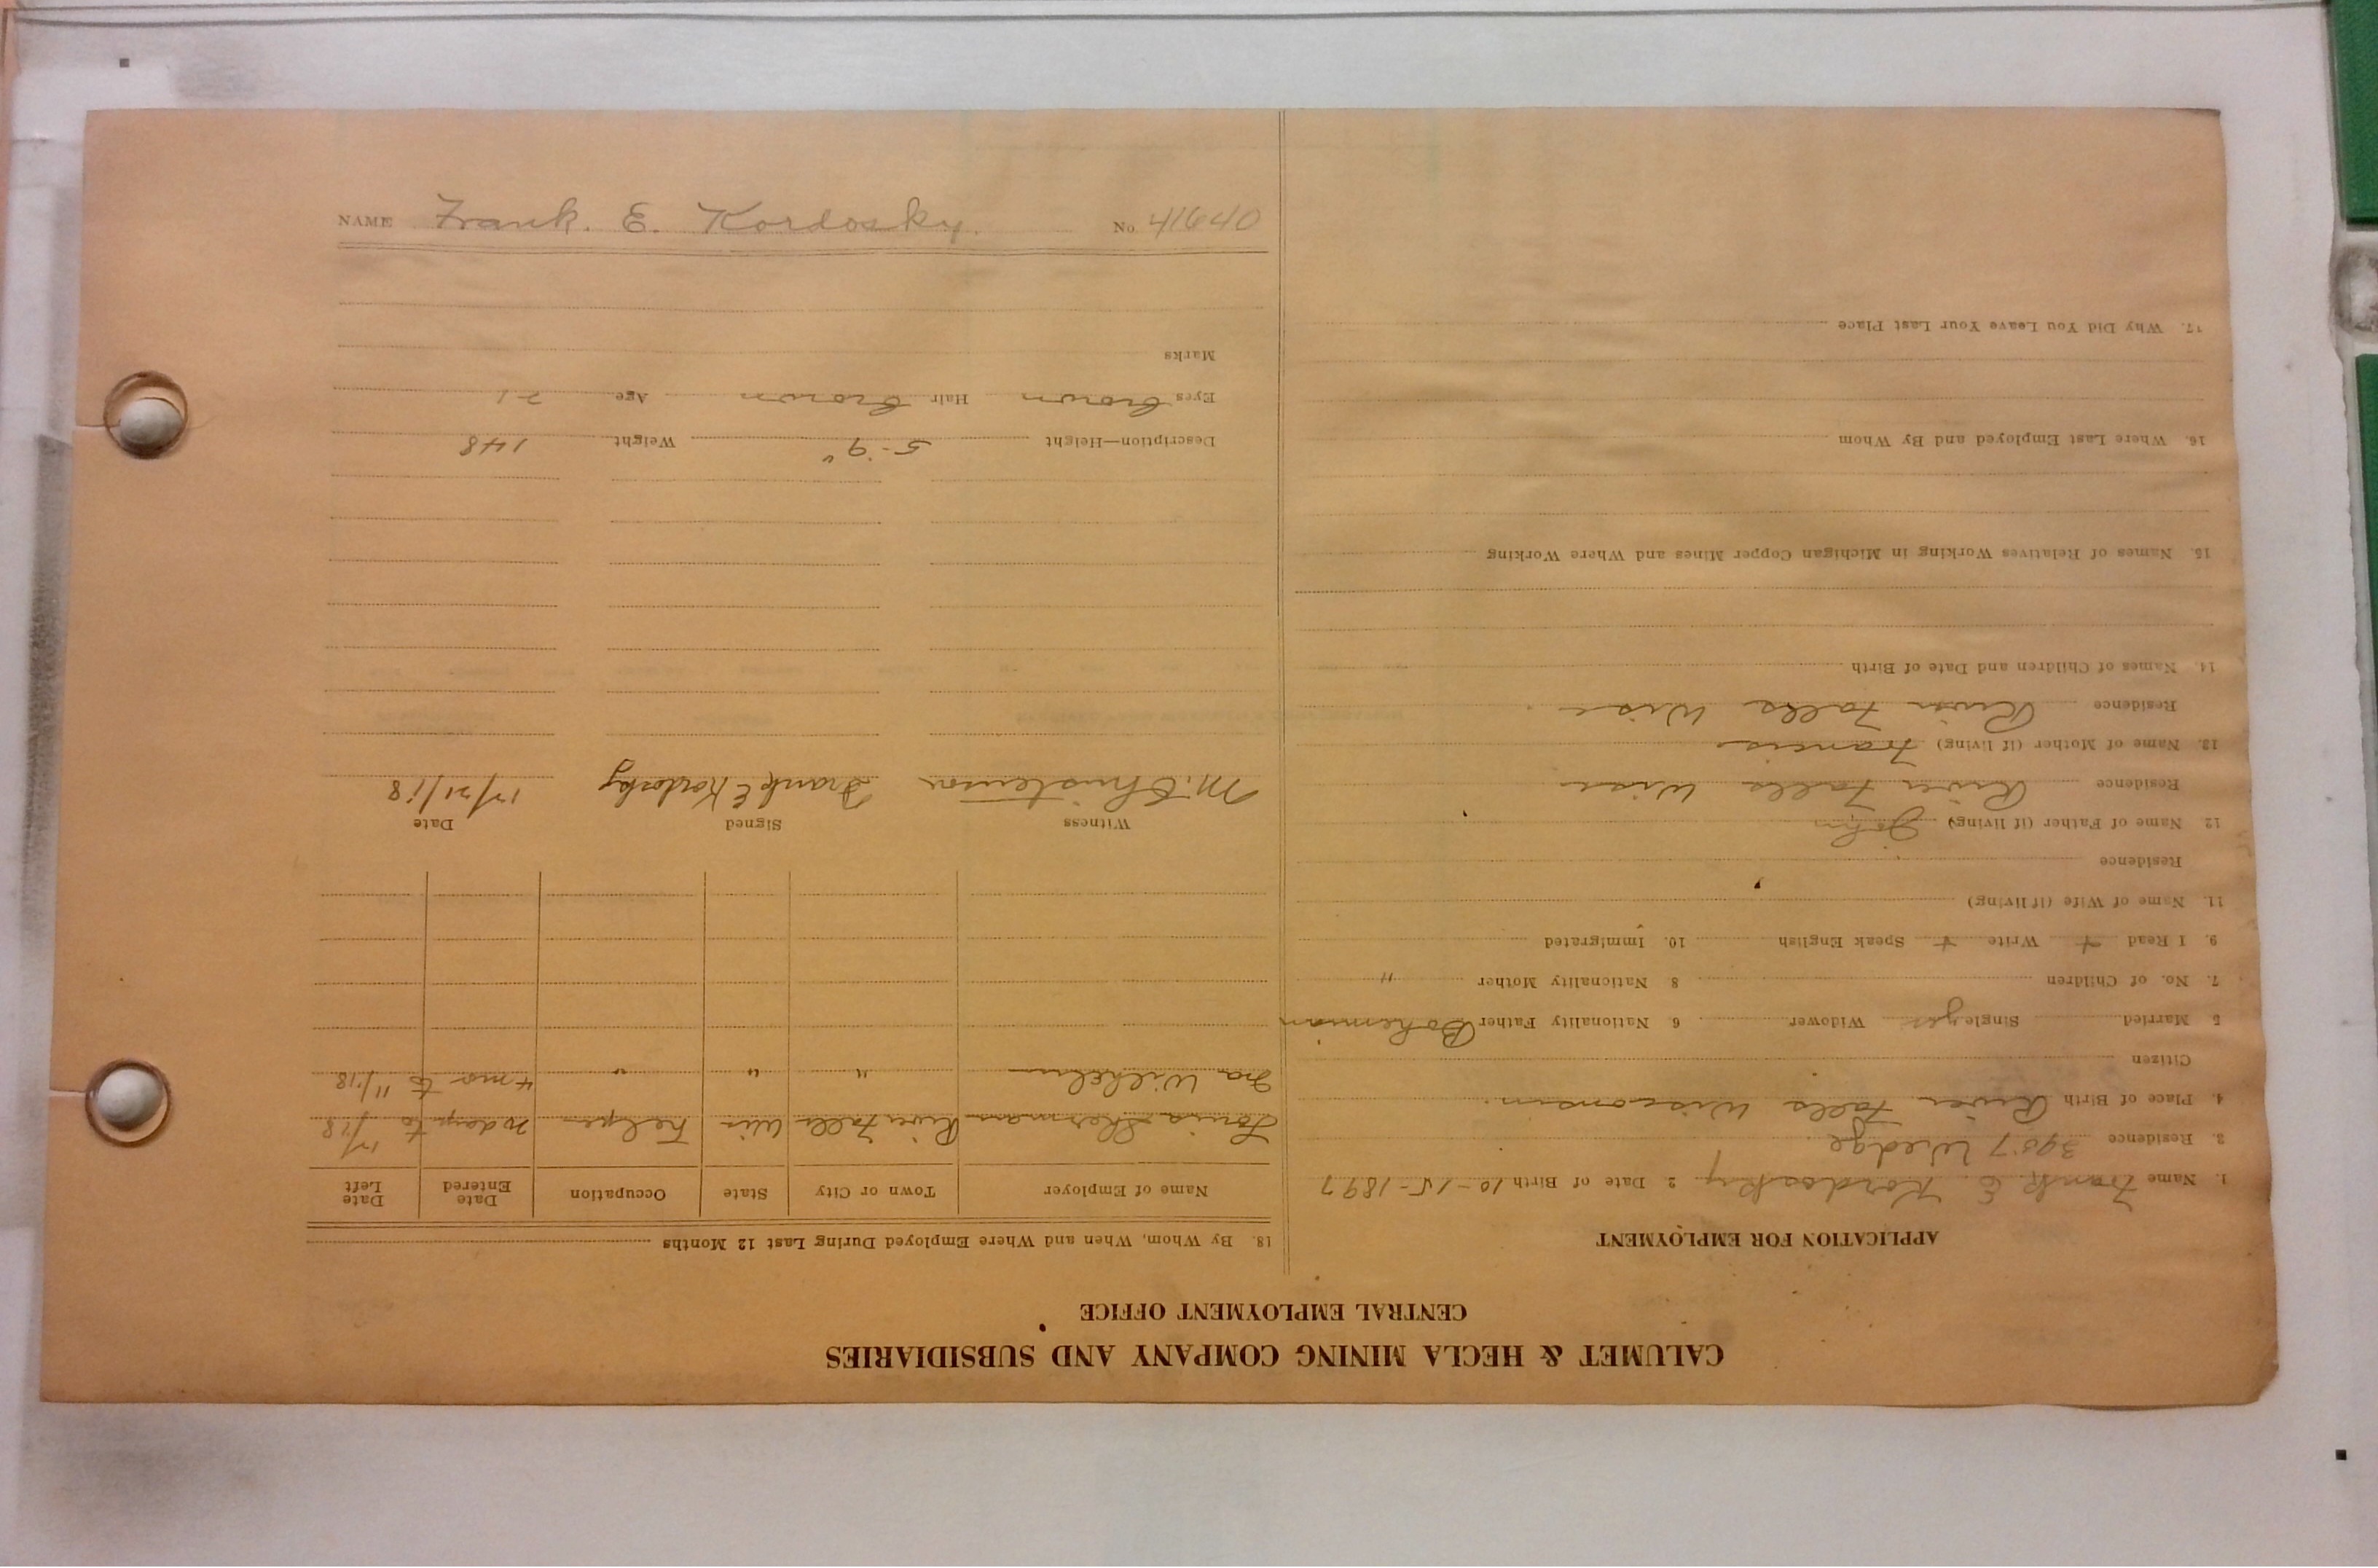 CALUMET & HECLA MINING COMPANY AND SUBSIDIARIES
CENTRAL EMPLOYMENT OFFICE
APPLICATION FOR EMPLOYMENT
1. Name Frank E. Kordosky 2. Date of Birth 10-15-1897
3. Residence 3907 Wedge
4. Place of Birth River Falls Wisconsin.
Citizen
5 Married Single yes Widower 6 Nationality Father Bohemian
7. No. of Children 8 Nationality Mother "
9. I Read + Write + Speak English 10. Immigrated
11. Name of Wife (if living)
Residence
12. Name of Father (if living) John
Residence River Falls Wisc
13. Name of Mother (if living) Francis
Residence River Falls Wisc
14. Names of Children and Date of Birth
15. Names of Relatives Working in Michigan Copper Mines and Where Working
16. Where Last Employed and By Whom
17. Why Did You Leave Your Last Place
18. By Whom, When and Where Employed During Last 12 Months
Name of Employer Town or City State Occupation Date Entered Date Left
Louis Sherman River Falls Wis Helper 20 days to 12/18
Ira Wilhelm " " " 4 mo to 11/18
Witness Signed Date
M. Christenson Frank E Kordosky 12/21/18
Description—Height 5-9" Weight 148
Eyes brown Hair brown Age 21
Marks
NAME Frank. E. Kordosky. No. 41640